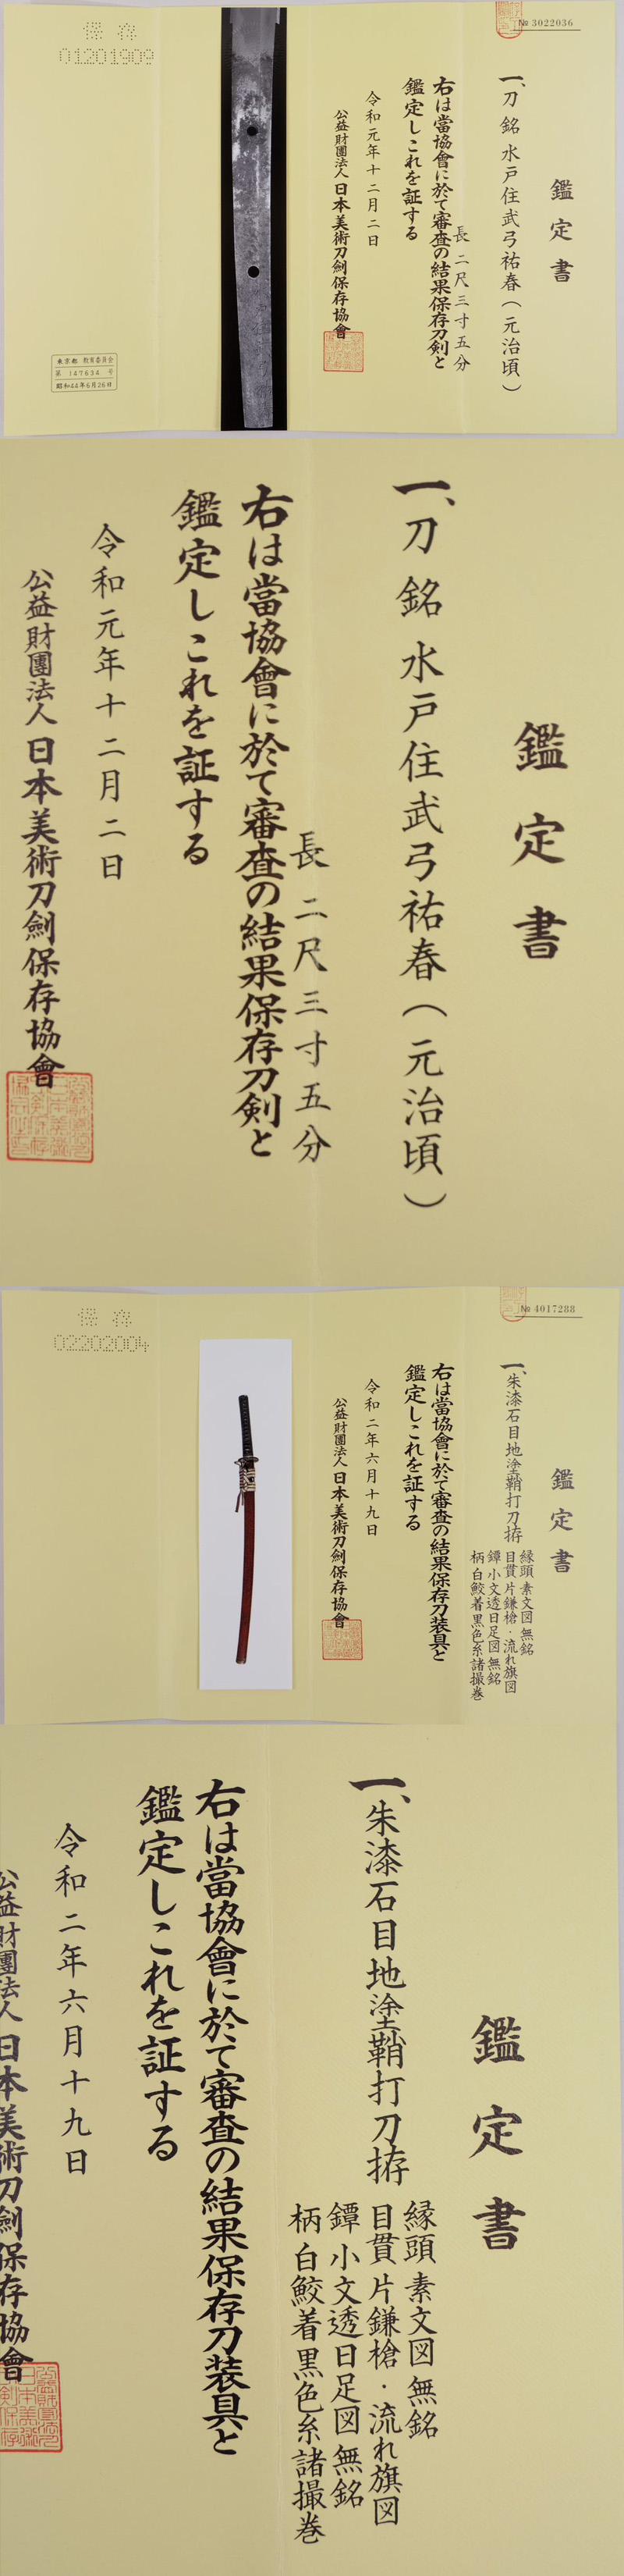 № 3022036
鑑定書
一、刀 銘 水戸住武弓祐春(元治頃)
長 二尺三寸五分
右は當協會に於て審査の結果保存刀剣と
鑑定しこれを証する
令和元年十二月二日
公益財團法人 日本美術刀劍保存協會
保存
01201909
東京都 教育委員会
第 147634 号
昭和44年6月26日
鑑定書
一、刀 銘 水戸住武弓祐春(元治頃)
長 二尺三寸五分
右は當協會に於て審査の結果保存刀剣と
鑑定しこれを証する
令和元年十二月二日
公益財團法人 日本美術刀劍保存協會
№ 4017288
鑑定書
一、朱漆石目地塗鞘打刀拵
縁頭 素文図 無銘
目貫 片鎌槍・流れ旗図
鐔 小文透日足図 無銘
柄 白鮫着黒色糸諸撮巻
右は當協會に於て審査の結果保存刀装具と
鑑定しこれを証する
令和二年六月十九日
公益財團法人 日本美術刀劍保存協會
保存
02202004
鑑定書
一、朱漆石目地塗鞘打刀拵
縁頭 素文図 無銘
目貫 片鎌槍・流れ旗図
鐔 小文透日足図 無銘
柄 白鮫着黒色糸諸撮巻
右は當協會に於て審査の結果保存刀装具と
鑑定しこれを証する
令和二年六月十九日
公益財團法人 日本美術刀劍保存協會